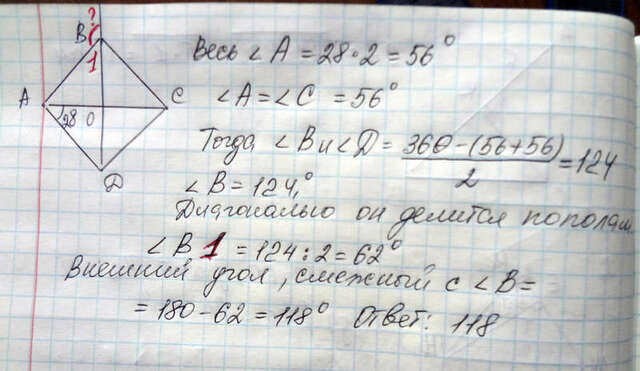 ?
B
1
A
28
O
C
Д
Весь ∠A = 28·2 = 56°
∠A = ∠C = 56°
Тогда ∠B и ∠Д = 360-(56+56) / 2 = 124
∠B = 124,°
Диагональю он делится пополам,
∠B 1 = 124 : 2 = 62°
Внешний угол, смежный с ∠B =
= 180 - 62 = 118° Ответ: 118